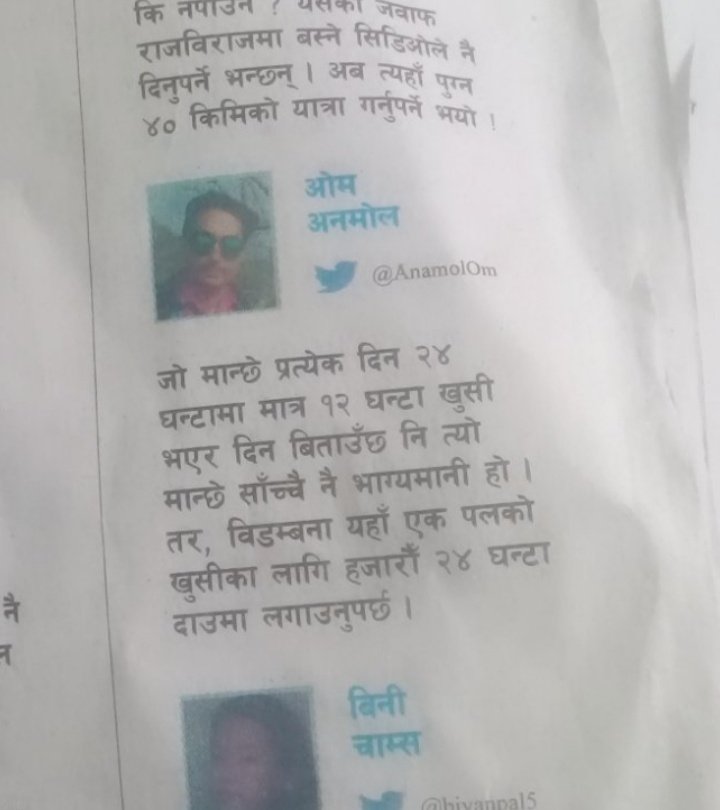 कि नपाउने ? यसको जवाफ
राजविराजमा बस्ने सिडिओले नै
दिनुपर्ने भन्छन् । अब त्यहाँ पुग्न
४० किमिको यात्रा गर्नुपर्ने भयो !
ओम
अनमोल
@AnamolOm
जो मान्छे प्रत्येक दिन २४
घन्टामा मात्र १२ घन्टा खुसी
भएर दिन बिताउँछ नि त्यो
मान्छे साँच्चै नै भाग्यमानी हो ।
तर, विडम्बना यहाँ एक पलको
खुसीका लागि हजारौँ २४ घन्टा
दाउमा लगाउनुपर्छ ।
नै
बिनी
चाम्स